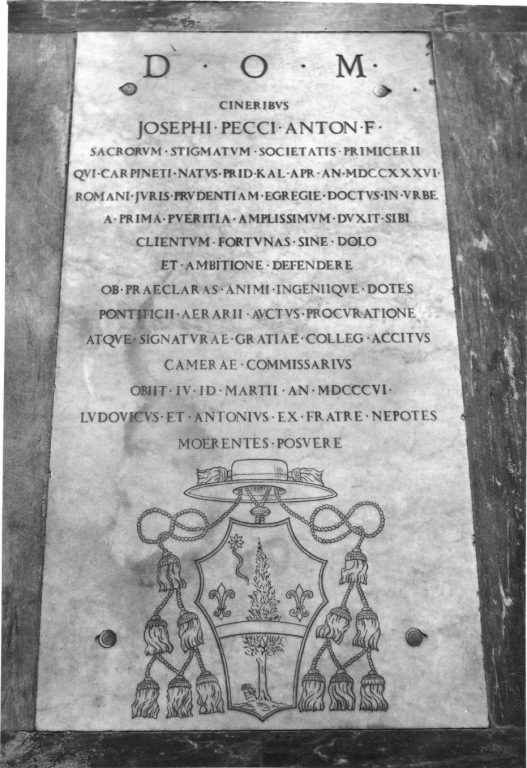 D · O · M ·
CINERIBVS
JOSEPHI · PECCI · ANTON · F ·
SACRORVM · STIGMATVM · SOCIETATIS · PRIMICERII
QVI · CARPINETI · NATVS · PRID · KAL · APR · AN · MDCCXXXVI ·
ROMANI · JVRIS · PRVDENTIAM · EGREGIE · DOCTVS · IN · VRBE
A · PRIMA · PVERITIA · AMPLISSIMVM · DVXIT · SIBI
CLIENTVM · FORTVNAS · SINE · DOLO
ET · AMBITIONE · DEFENDERE
OB · PRAECLARAS · ANIMI · INGENIIQVE · DOTES
PONTIFICII · AERARII · AVCTVS · PROCVRATIONE
ATQVE · SIGNATVRAE · GRATIAE · COLLEG · ACCITVS
CAMERAE · COMMISSARIVS
OBIIT · IV · ID · MARTII · AN · MDCCCVI ·
LVDOVICVS · ET · ANTONIVS · EX · FRATRE · NEPOTES
MOERENTES · POSVERE